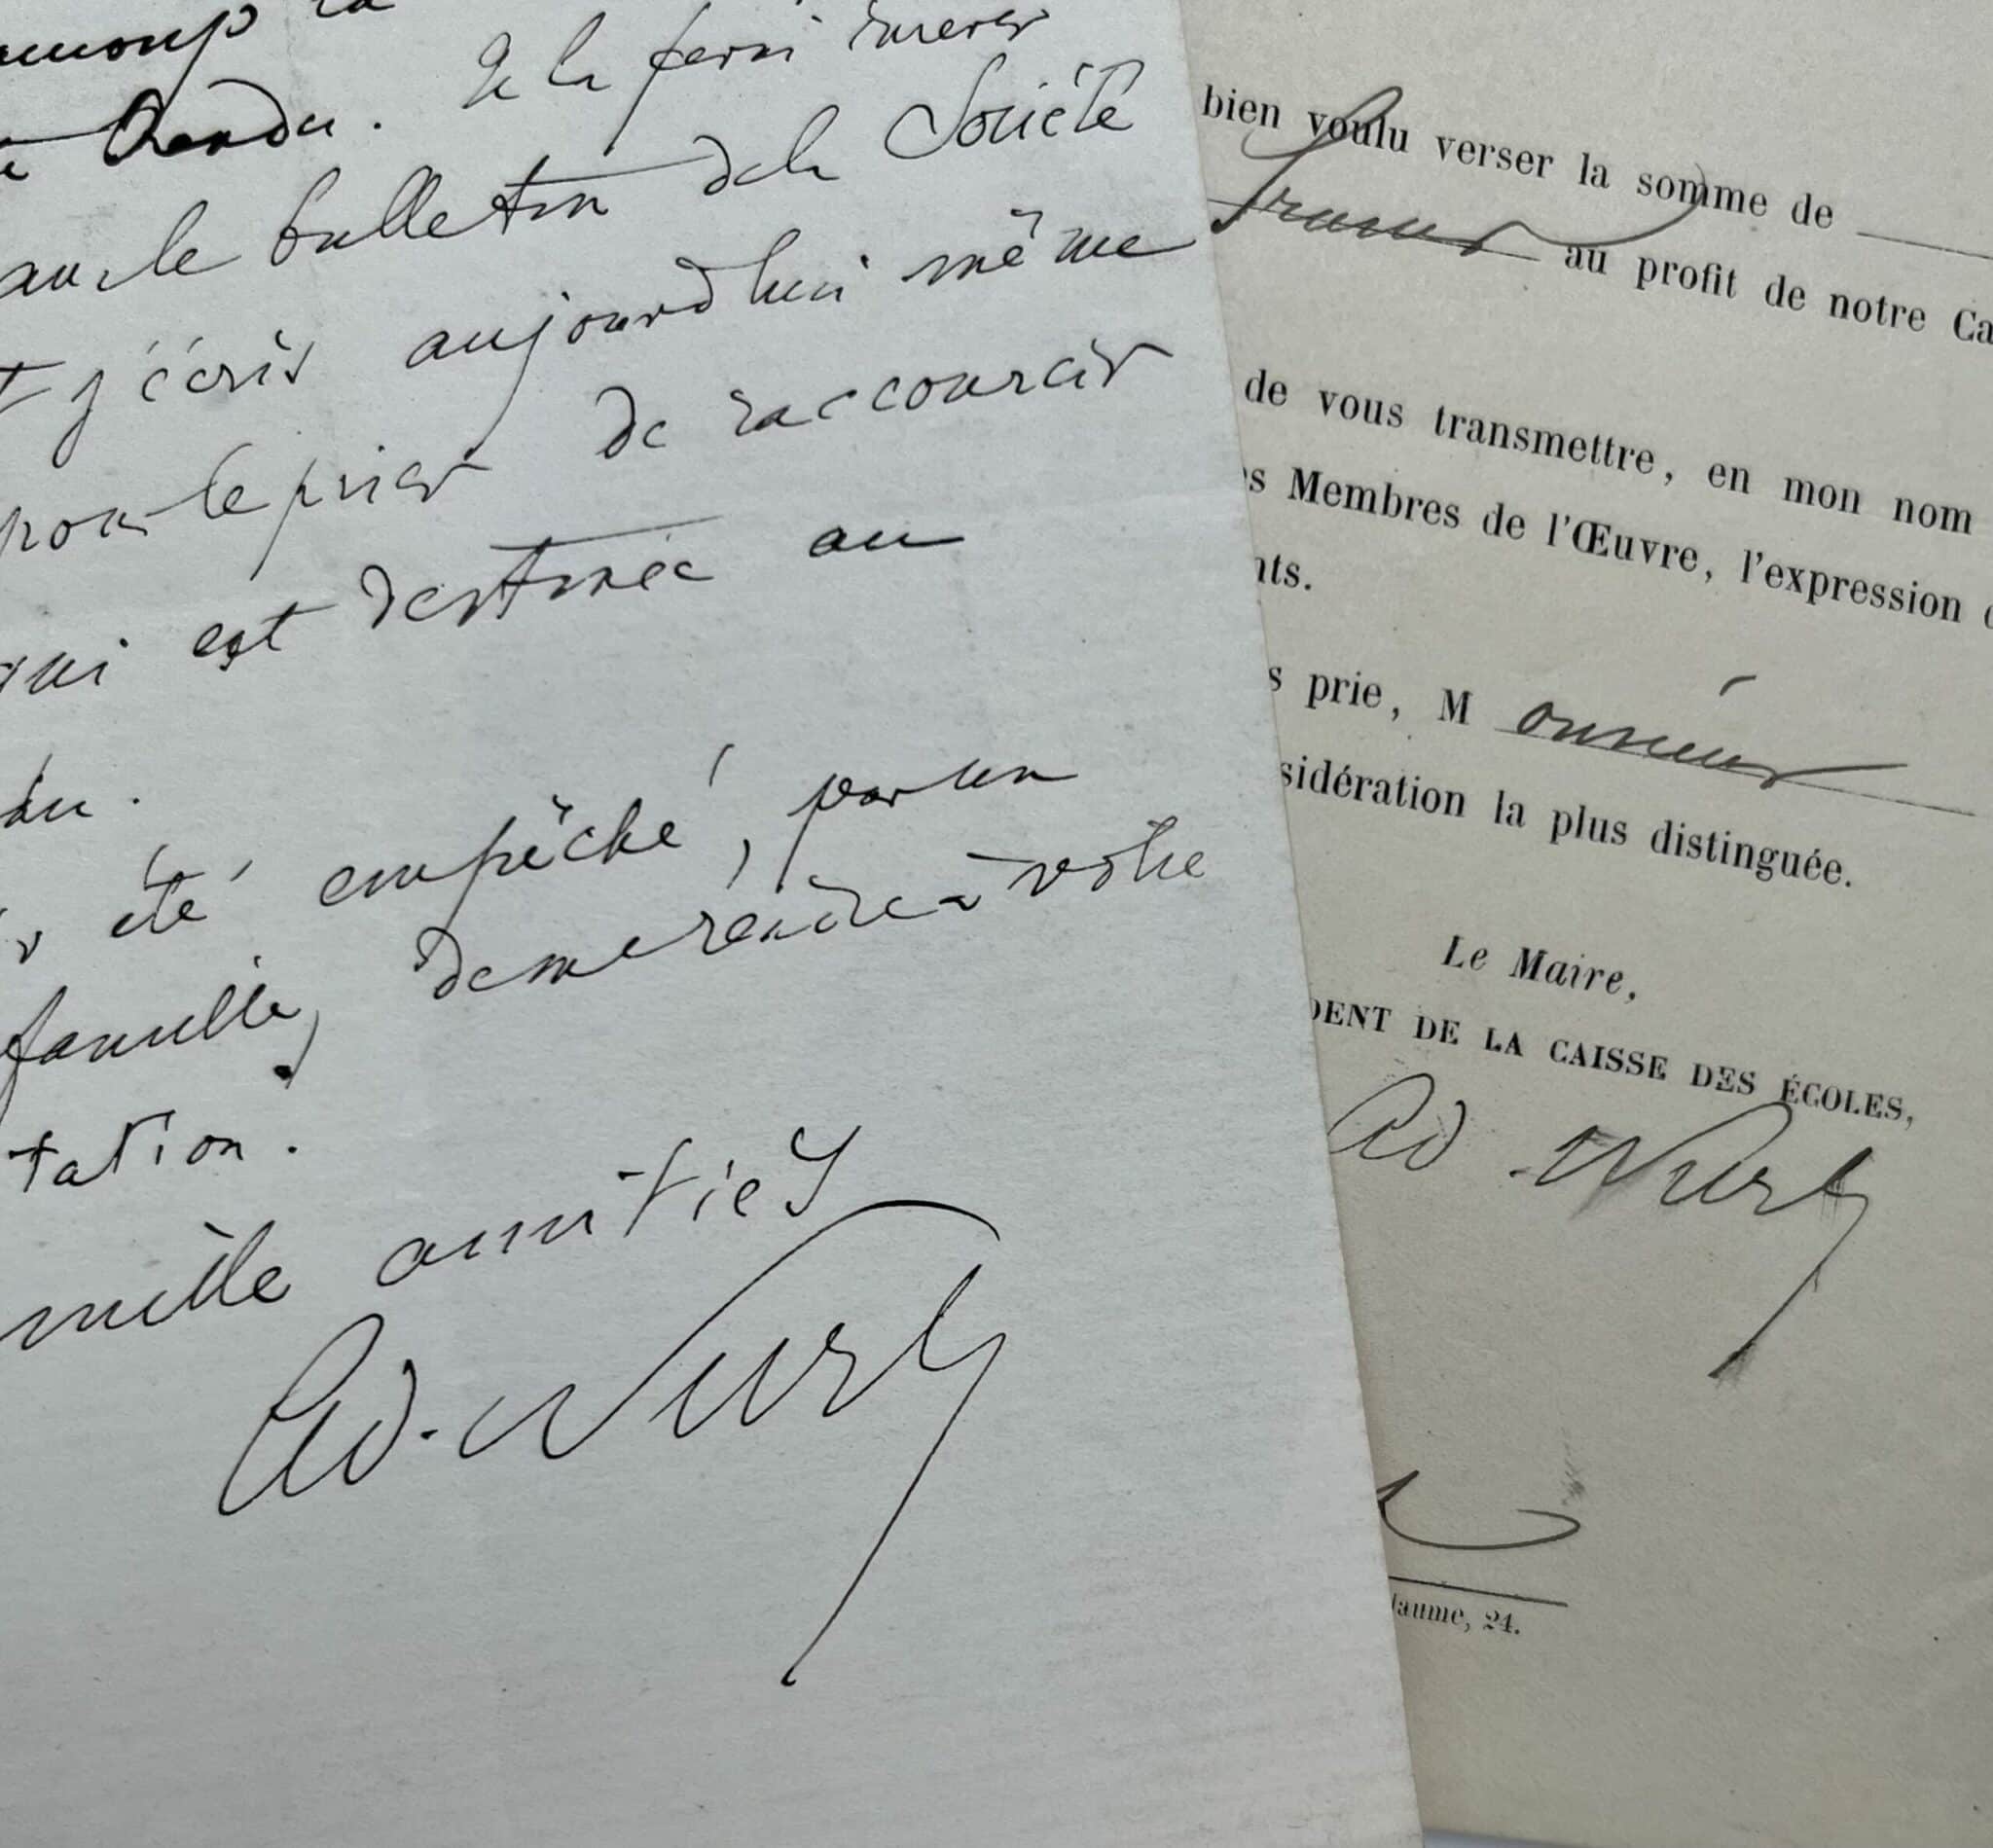 Rendu. Je la ferai insérer
le bulletin de la Société
j'écris aujourd'hui même
pour le prier de raccourcir
qui est destinée au
du.
été empêché, par un
famille, de me rendre à votre
tation.
mille amitiés
Ad. Wurtz
bien voulu verser la somme de
francs au profit de notre Ca
de vous transmettre, en mon nom
s Membres de l'Œuvre, l'expression
nts.
s prie, Monsieur
sidération la plus distinguée.
Le Maire,
DENT DE LA CAISSE DES ÉCOLES,
Ad. Wurtz
laume, 24.